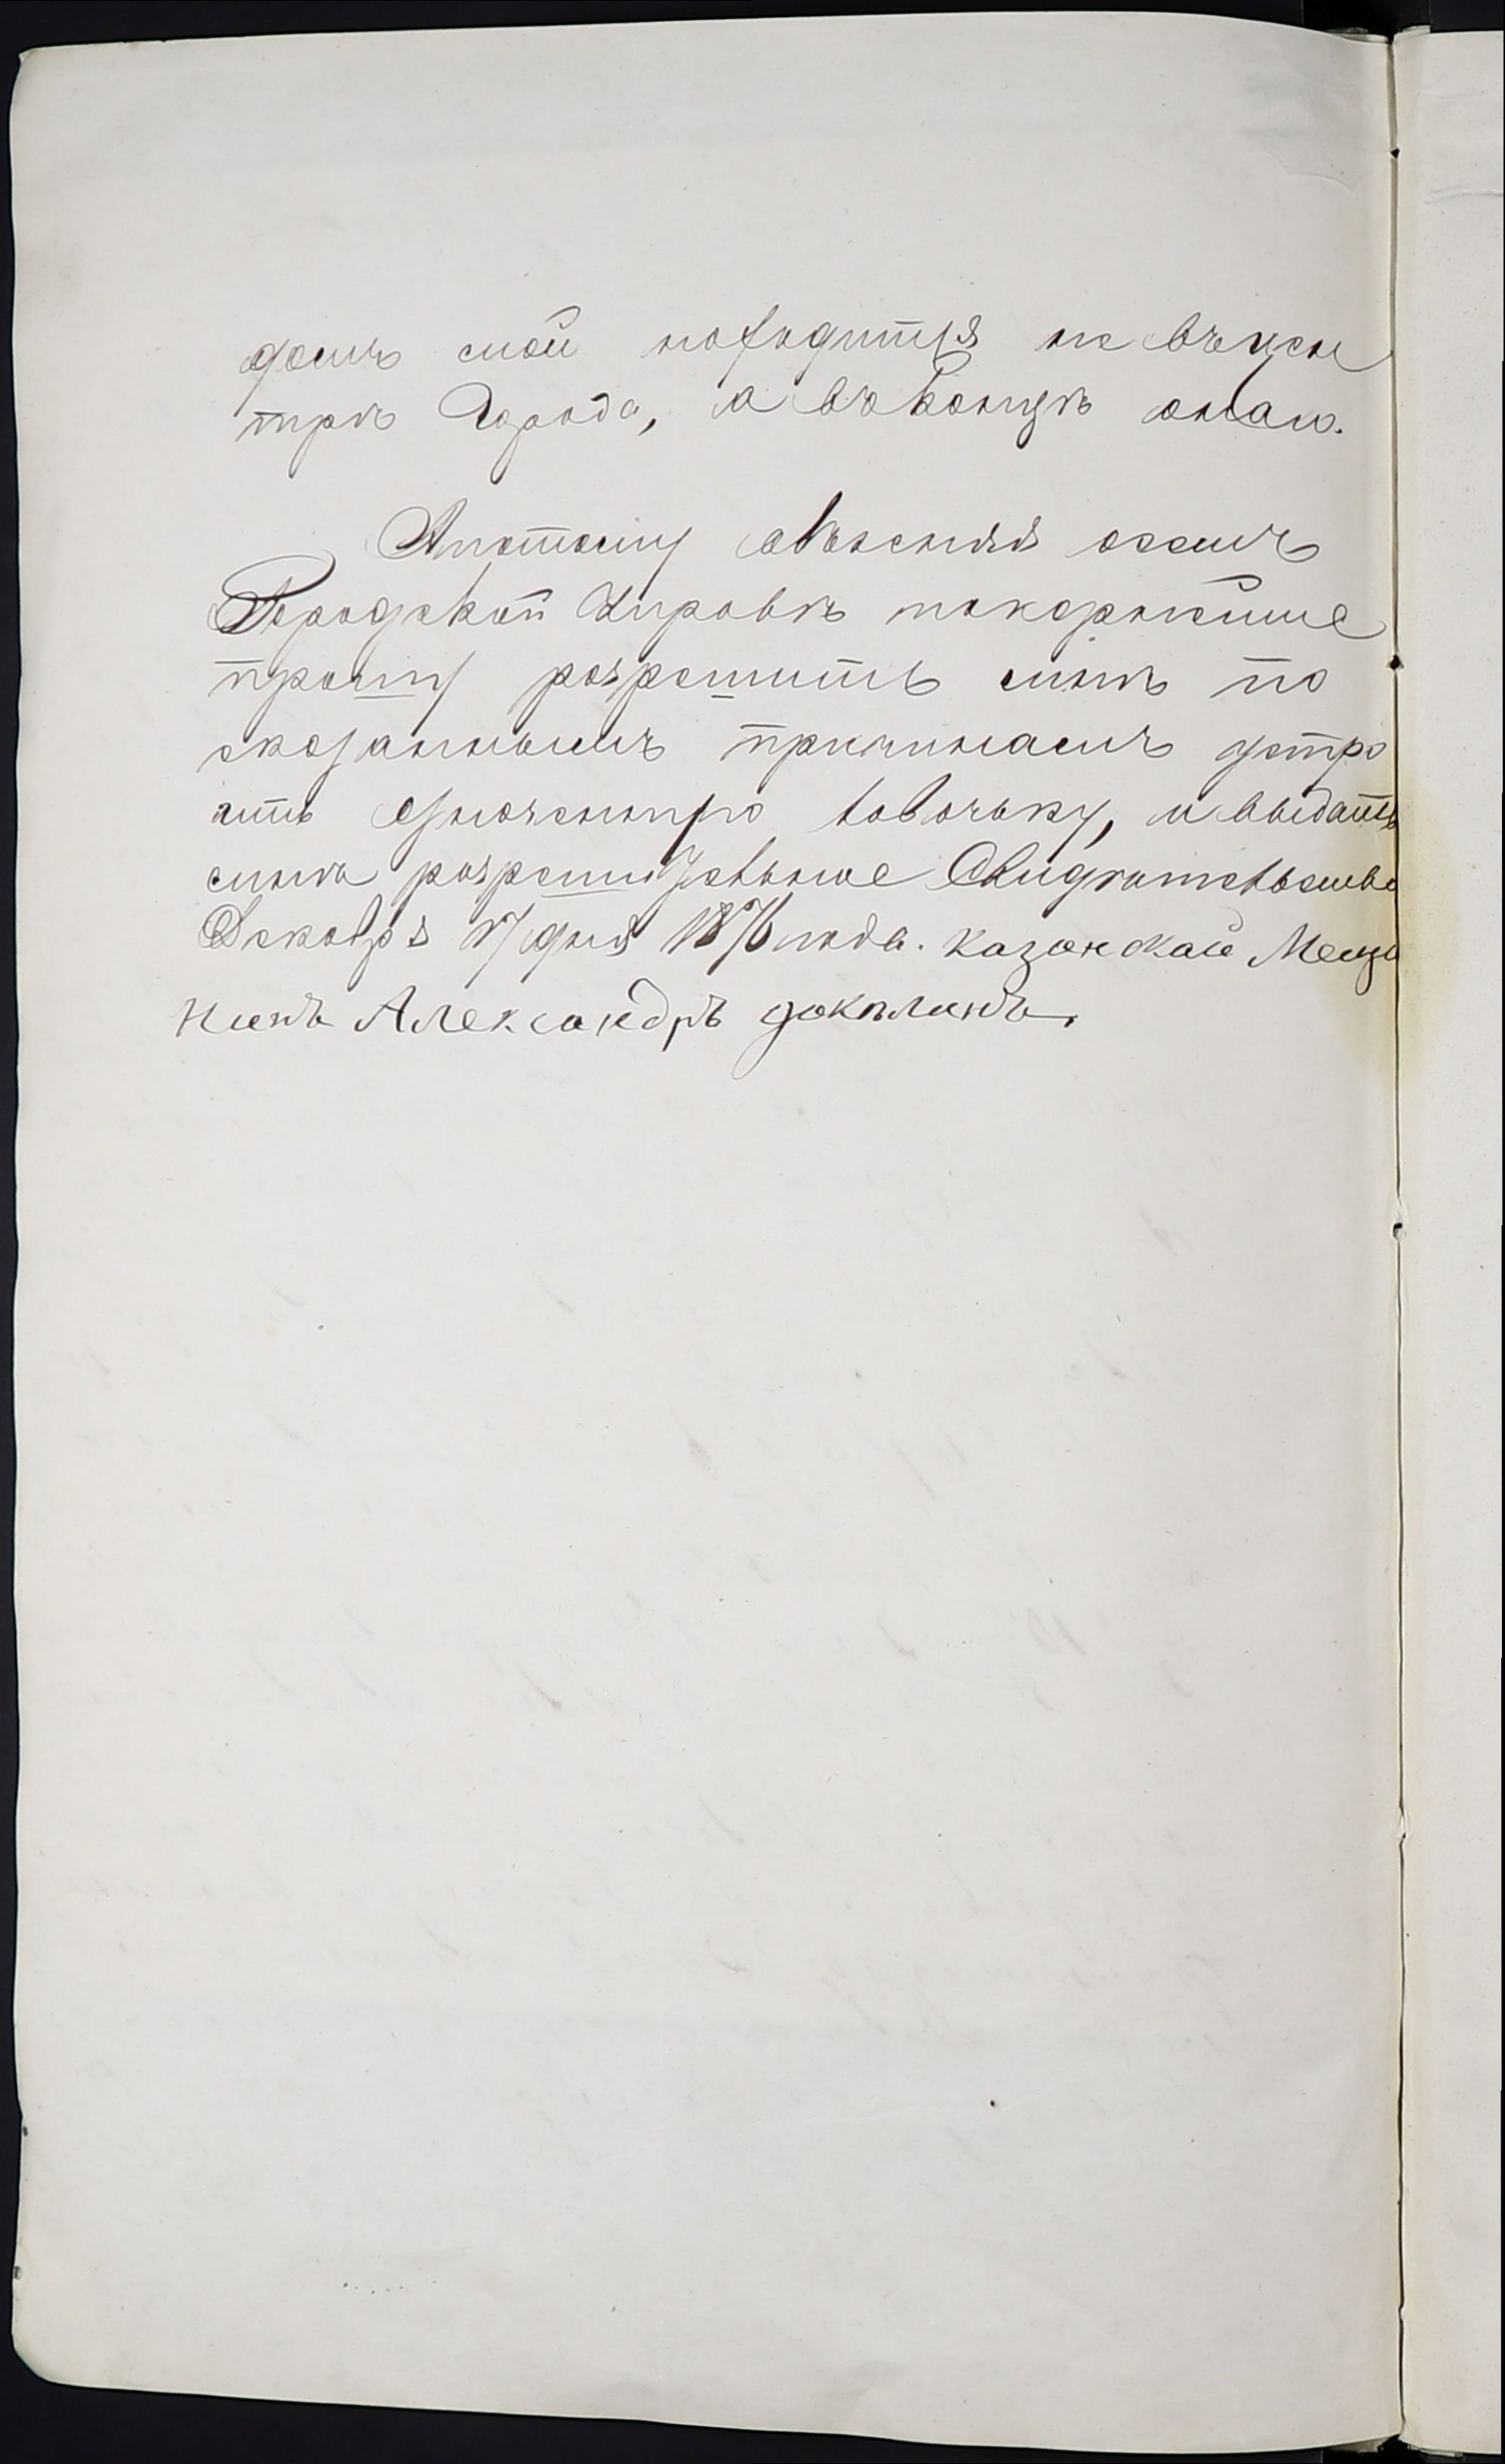 домъ мой находится не въ цен
трѣ Города, а въ Концѣ онаго.
Апотому объясняя осемъ
Городской Управѣ покорнейше
прошу розрешить мнѣ по
сказаннымъ причинамъ устро
ить лавочьку, и выдать
мнѣ розрешительное Свидѣтельство
Декабря 17 дня 1876 года. Казанской Меща
нинъ Александръ